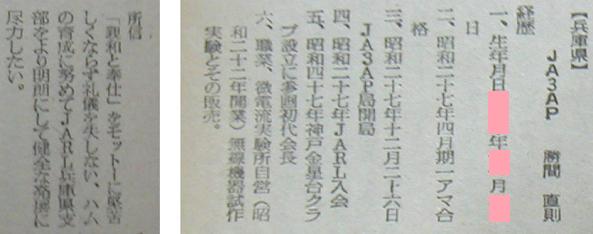 【兵庫県】
JA3AP 勝間 直則
経歴
一、生年月日 年 月
日
二、昭和二十七年四月期一アマ合
格
三、昭和二十七年十二月二十六日
JA3AP局開局
四、昭和二十七年JARL入会
五、昭和四十七年神戸金星台クラ
ブ設立に参画初代会長
六、職業、微電流実験所自営（昭
和二十二年開業）無線機器試作
実験とその販売。
所信
「親和と奉仕」をモットーに堅苦
しくならず礼儀を失しない、ハム
の育成に努めてJARL兵庫県支
部をより明朗にして健全な発展に
尽力したい。